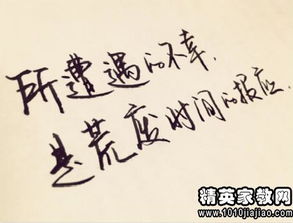 所遭遇的不幸,
是荒废时间的报应.
精英家教网
www.1010jiajiao.com